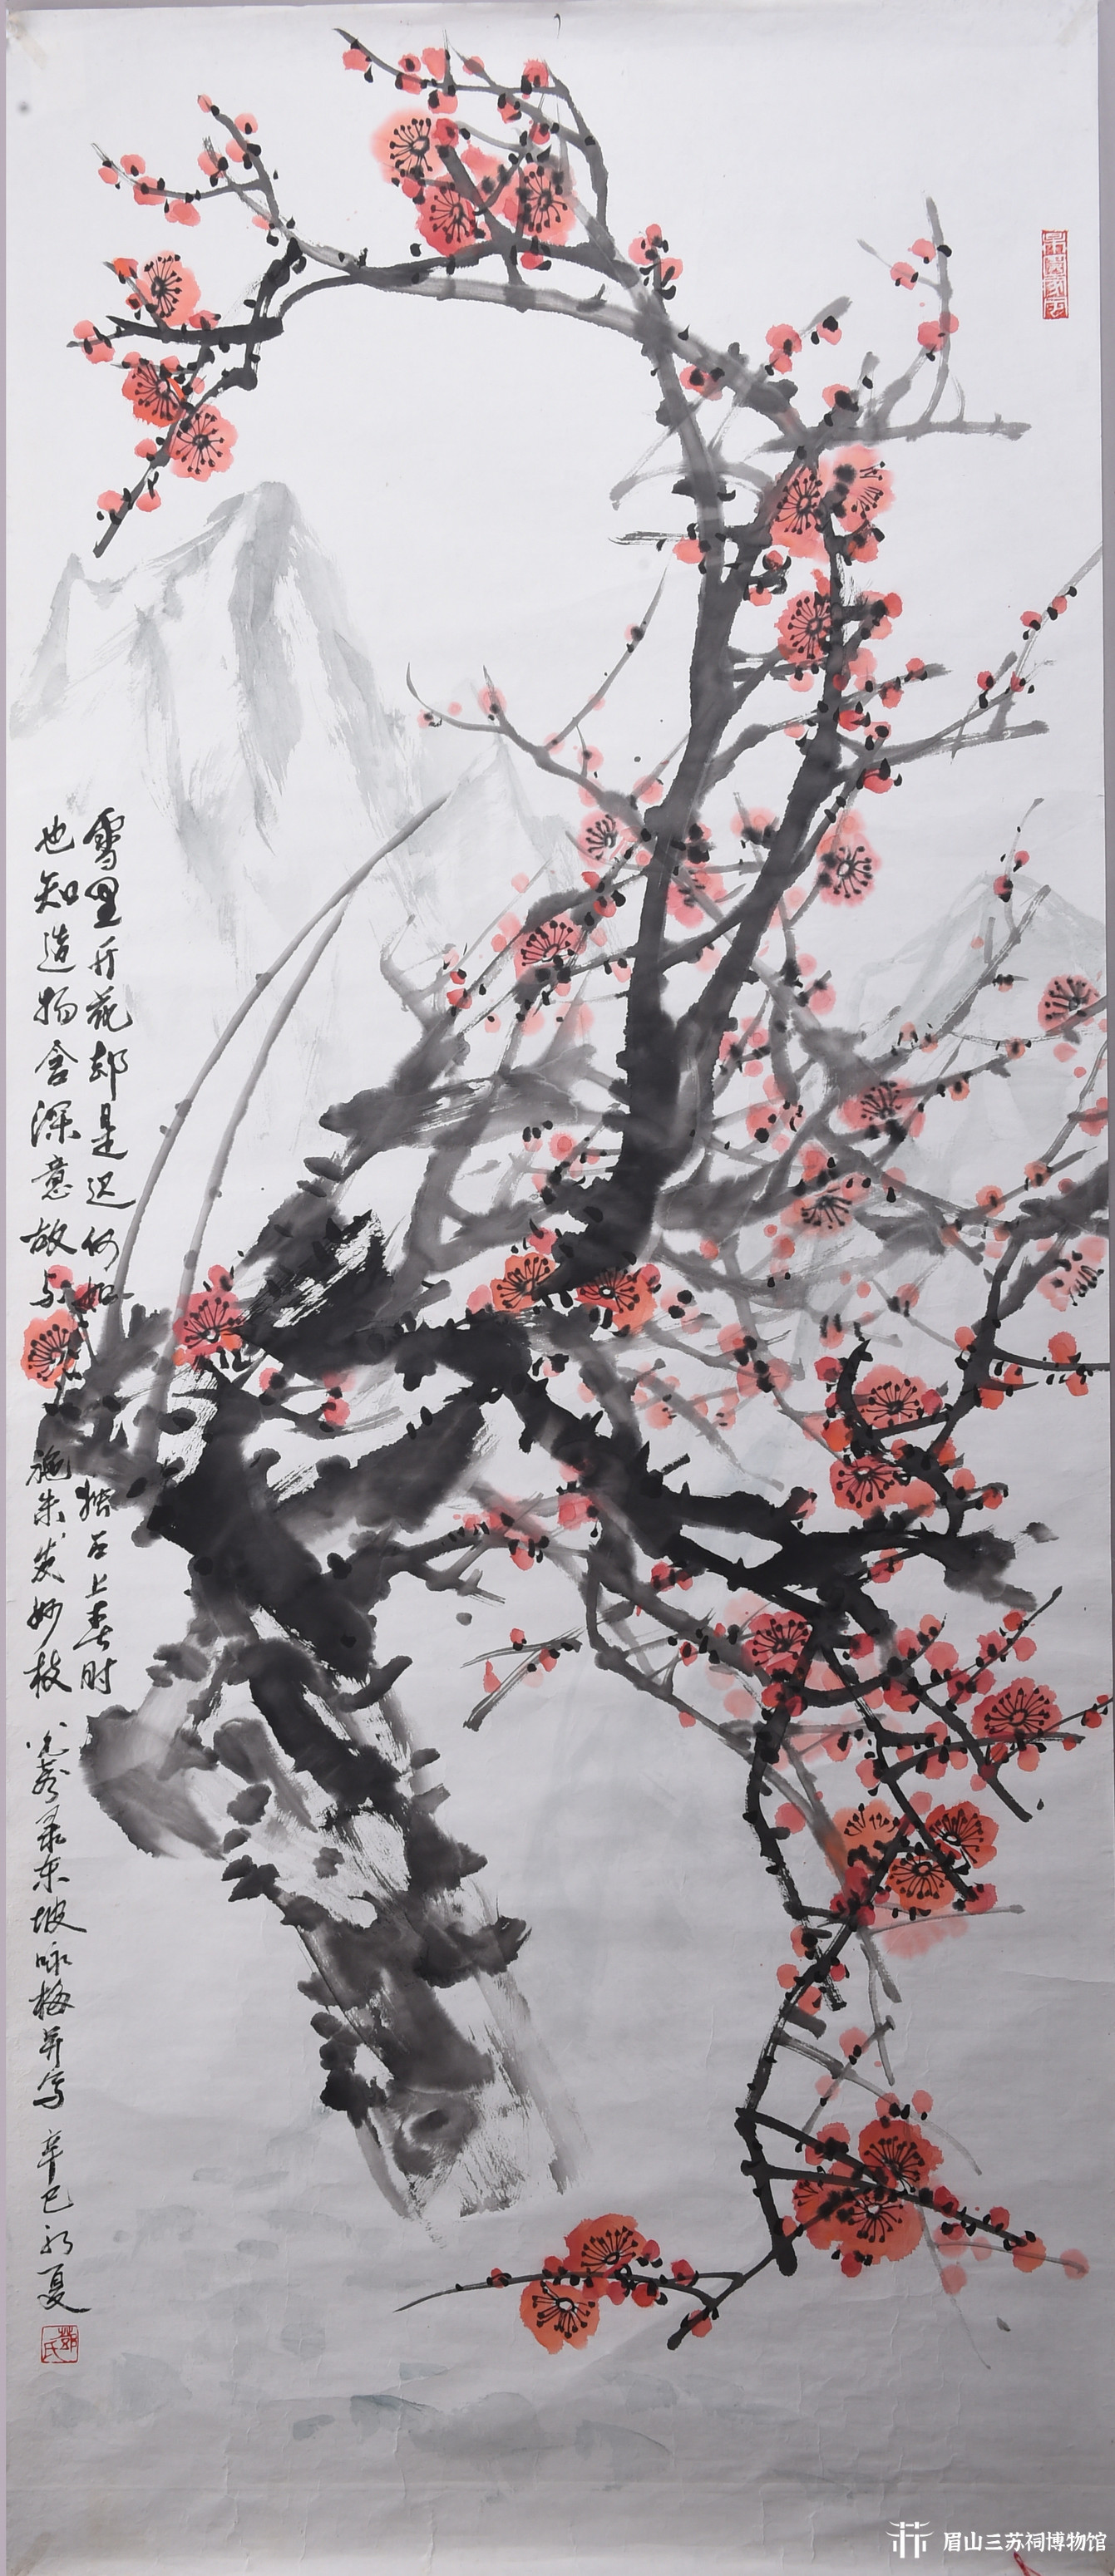 雪里开花却是迟何如
独占上春时
也知造物含深意故与
施朱发妙枝
录东坡咏梅并写
辛巳初夏
眉山三苏祠博物馆